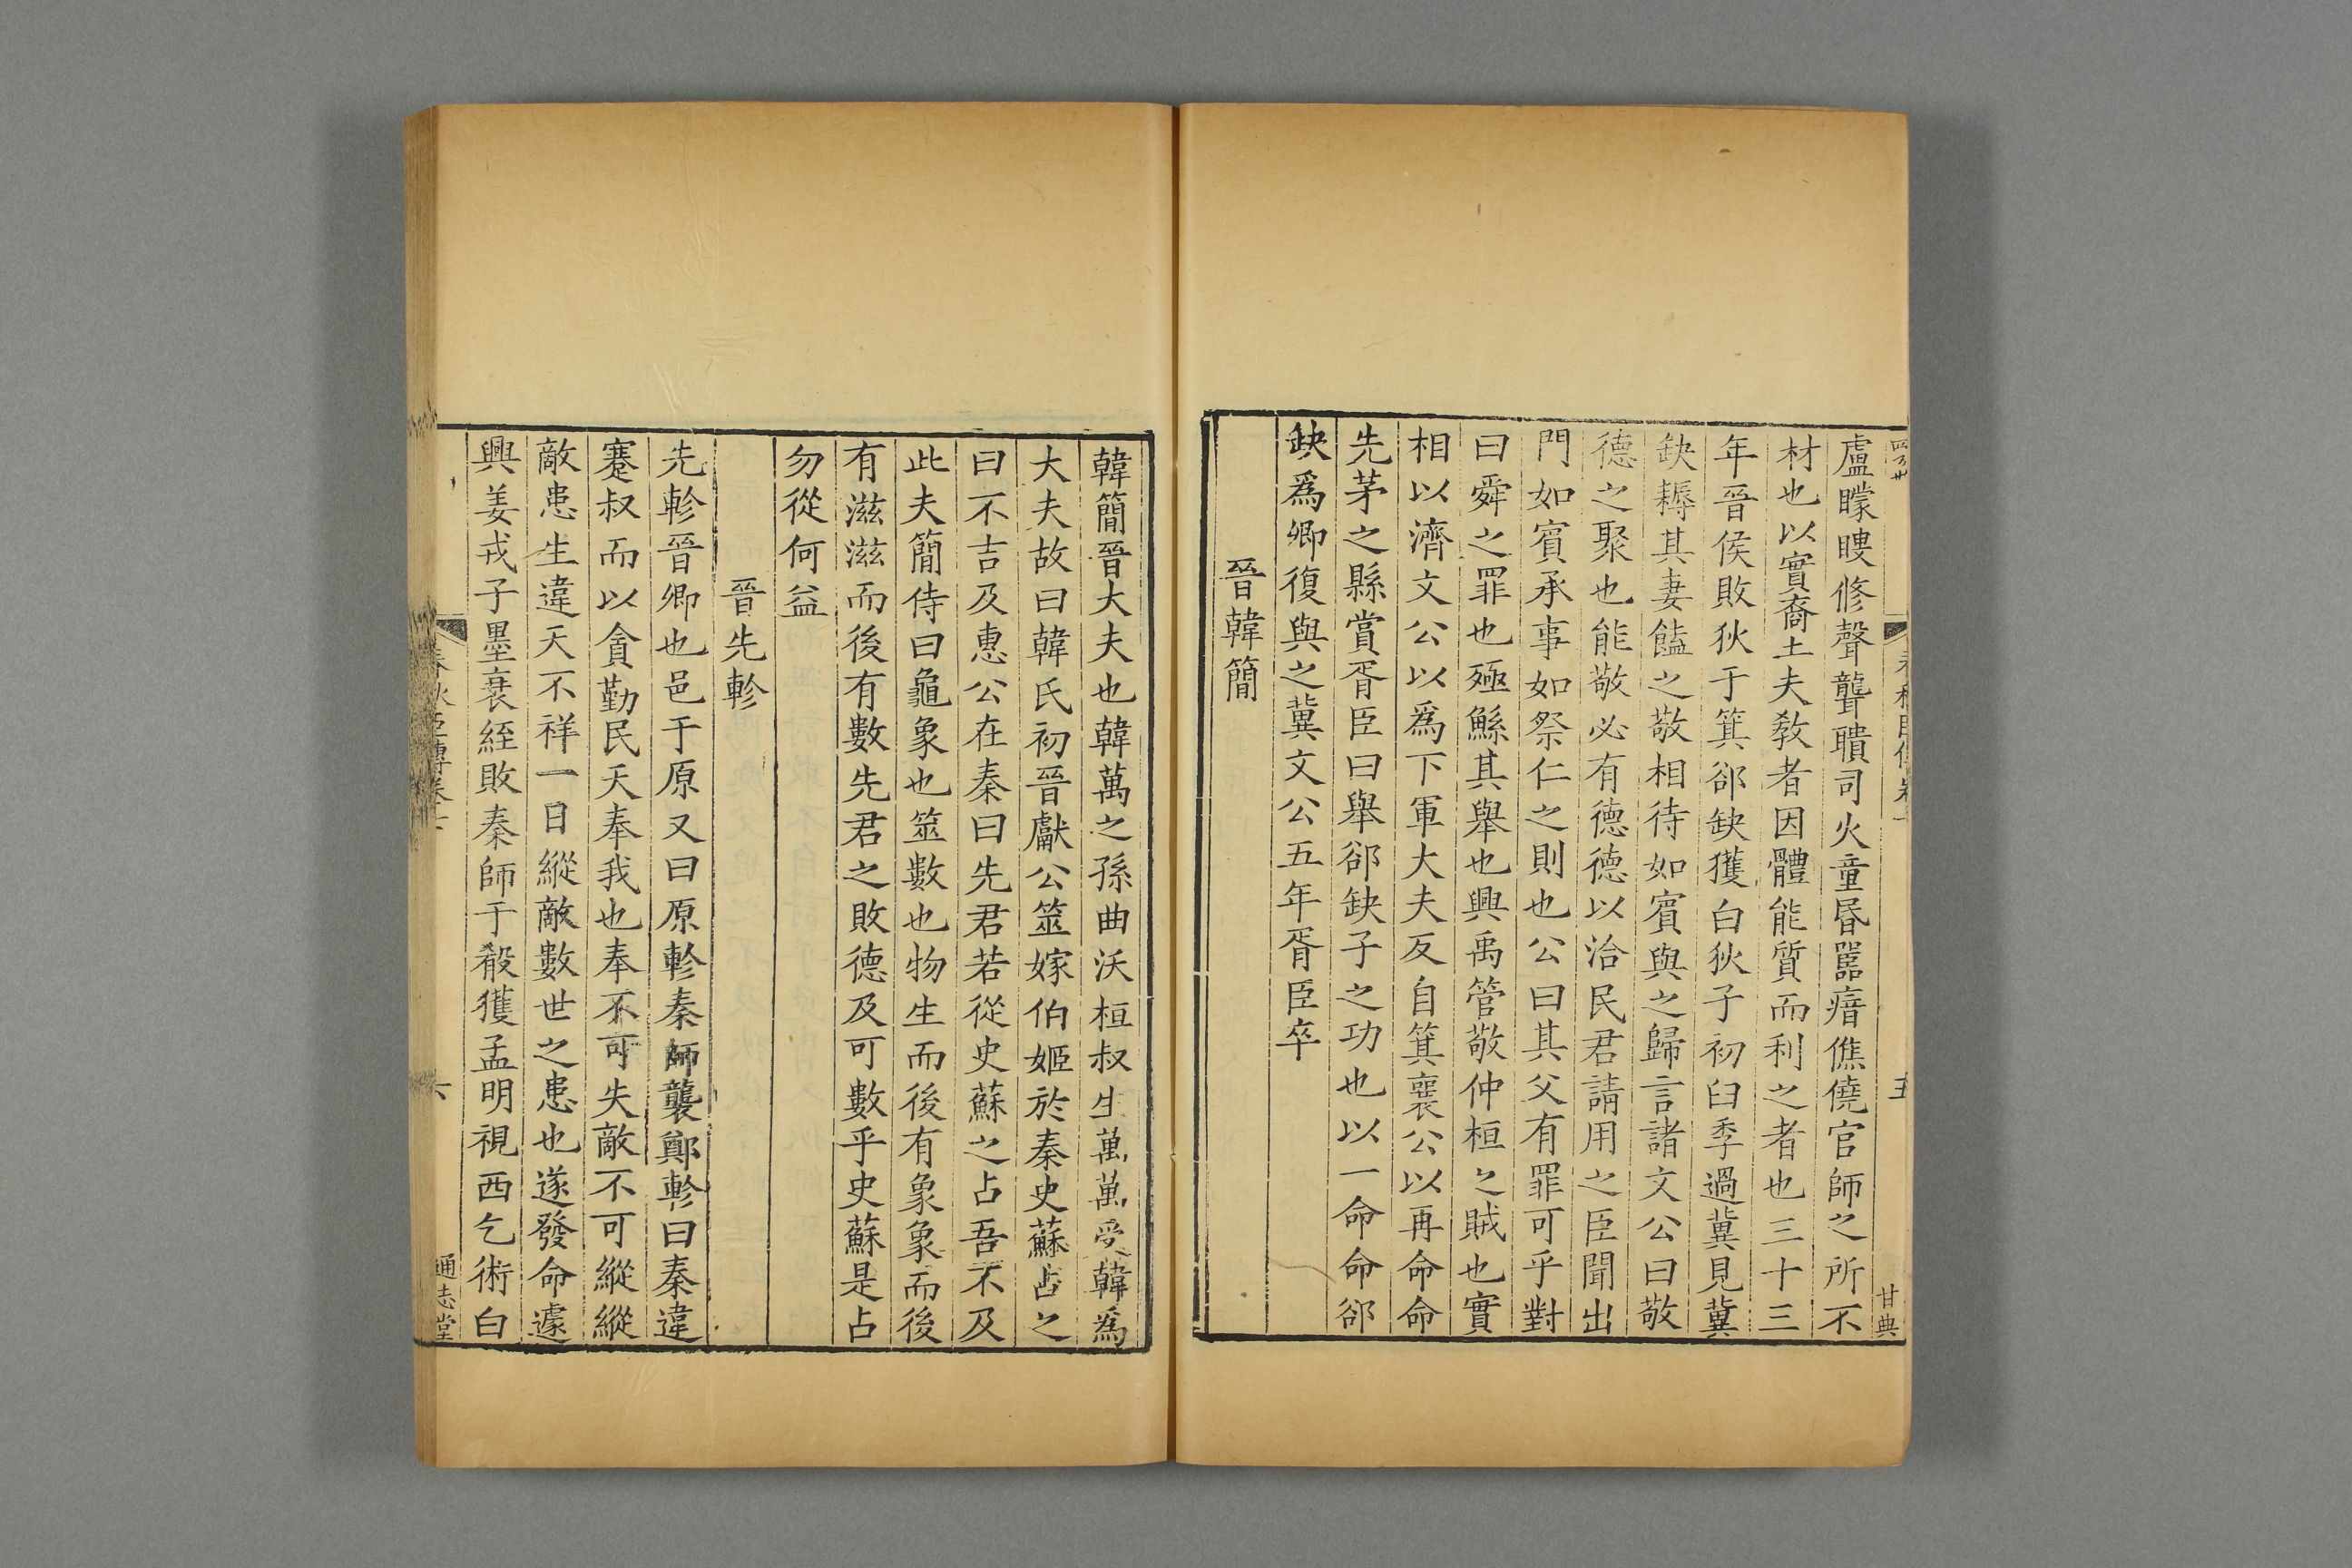 盧矇瞍修聲聾聵司火童昏嚚瘖僬僥官師之所不
材也以實裔土夫敎者因體能質而利之者也三十三
年晉侯敗狄于箕郤缺獲白狄子初臼季過冀見冀
缺耨其妻饁之敬相待如賓與之歸言諸文公曰敬
德之聚也能敬必有德德以治民君請用之臣聞出
門如賓承事如祭仁之則也公曰其父有罪可乎對
曰舜之罪也殛鯀其舉也興禹管敬仲桓之賊也實
相以濟文公以爲下軍大夫反自箕襄公以再命命
先茅之縣賞胥臣曰舉郤缺子之功也以一命命郤
缺爲卿復與之冀文公五年胥臣卒
晉韓簡
五
甘典
韓簡晉大夫也韓萬之孫曲沃桓叔生萬萬受韓爲
大夫故曰韓氏初晉獻公筮嫁伯姬於秦史蘇占之
曰不吉及惠公在秦曰先君若從史蘇之占吾不及
此夫簡侍曰龜象也筮數也物生而後有象象而後
有滋滋而後有數先君之敗德及可數乎史蘇是占
勿從何益
晉先軫
先軫晉卿也邑于原又曰原軫秦師襲鄭軫曰秦違
蹇叔而以貪勤民天奉我也奉不可失敵不可縱縱
敵患生違天不祥一日縱敵數世之患也遂發命遽
興姜戎子墨衰絰敗秦師于殽獲孟明視西乞術白
春秋臣傳卷七
六
通志堂